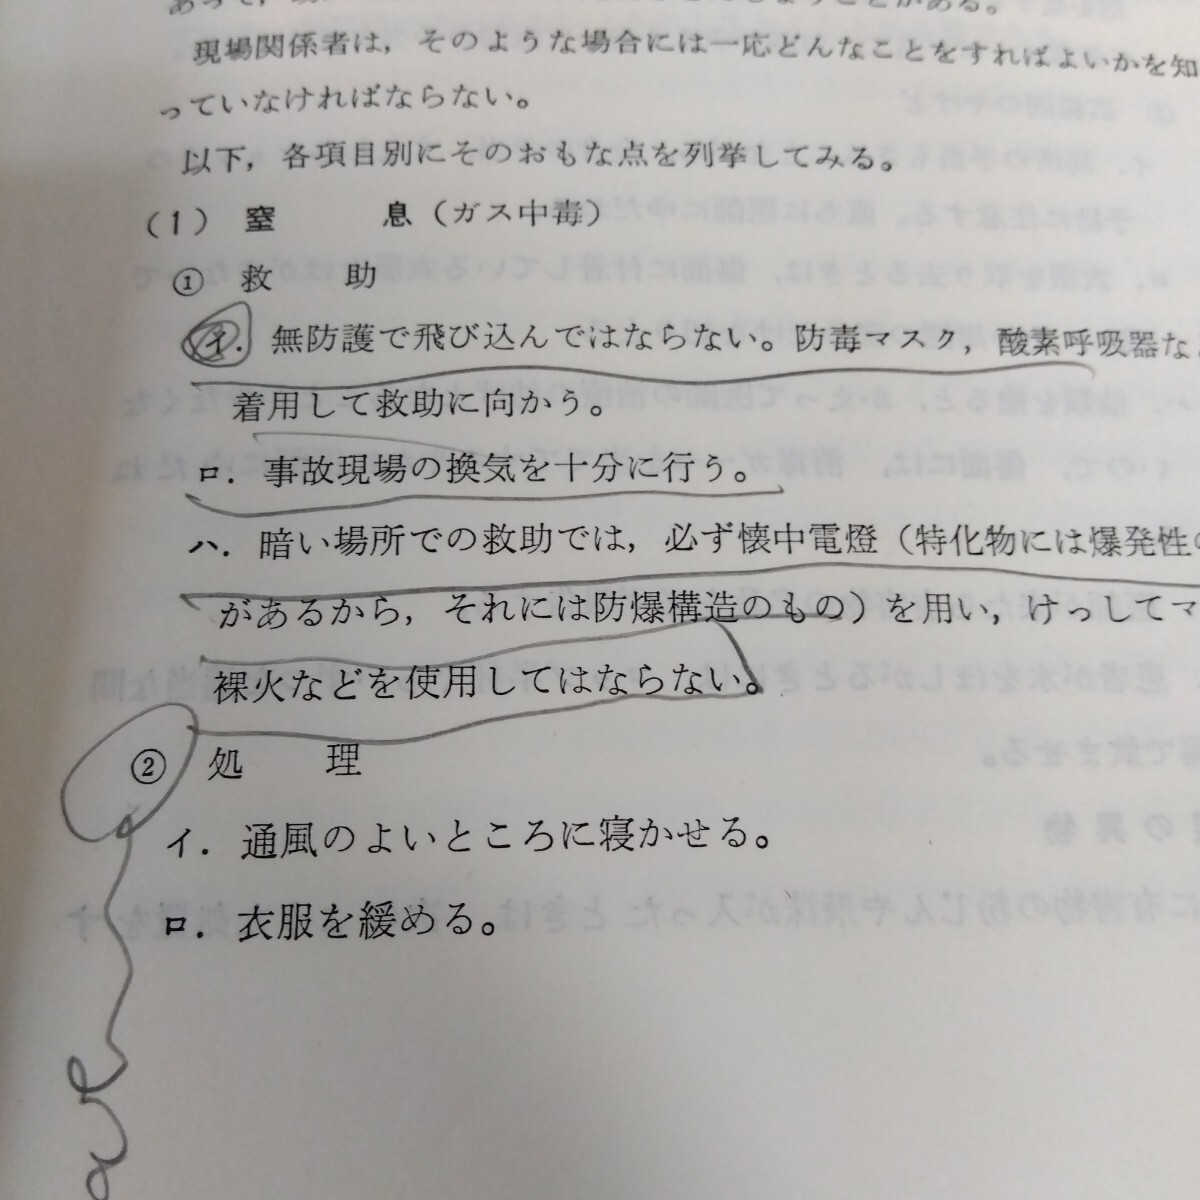 現場関係者は，そのような場合には一応どんなことをすればよいかを知
っていなければならない。
以下，各項目別にそのおもな点を列挙してみる。
(1) 窒息（ガス中毒）
① 救助
イ．無防護で飛び込んではならない。防毒マスク，酸素呼吸器な
着用して救助に向かう。
ロ．事故現場の換気を十分に行う。
ハ．暗い場所での救助では，必ず懐中電燈（特化物には爆発性の
があるから，それには防爆構造のもの）を用い，けっしてマ
裸火などを使用してはならない。
② 処理
イ．通風のよいところに寝かせる。
ロ．衣服を緩める。